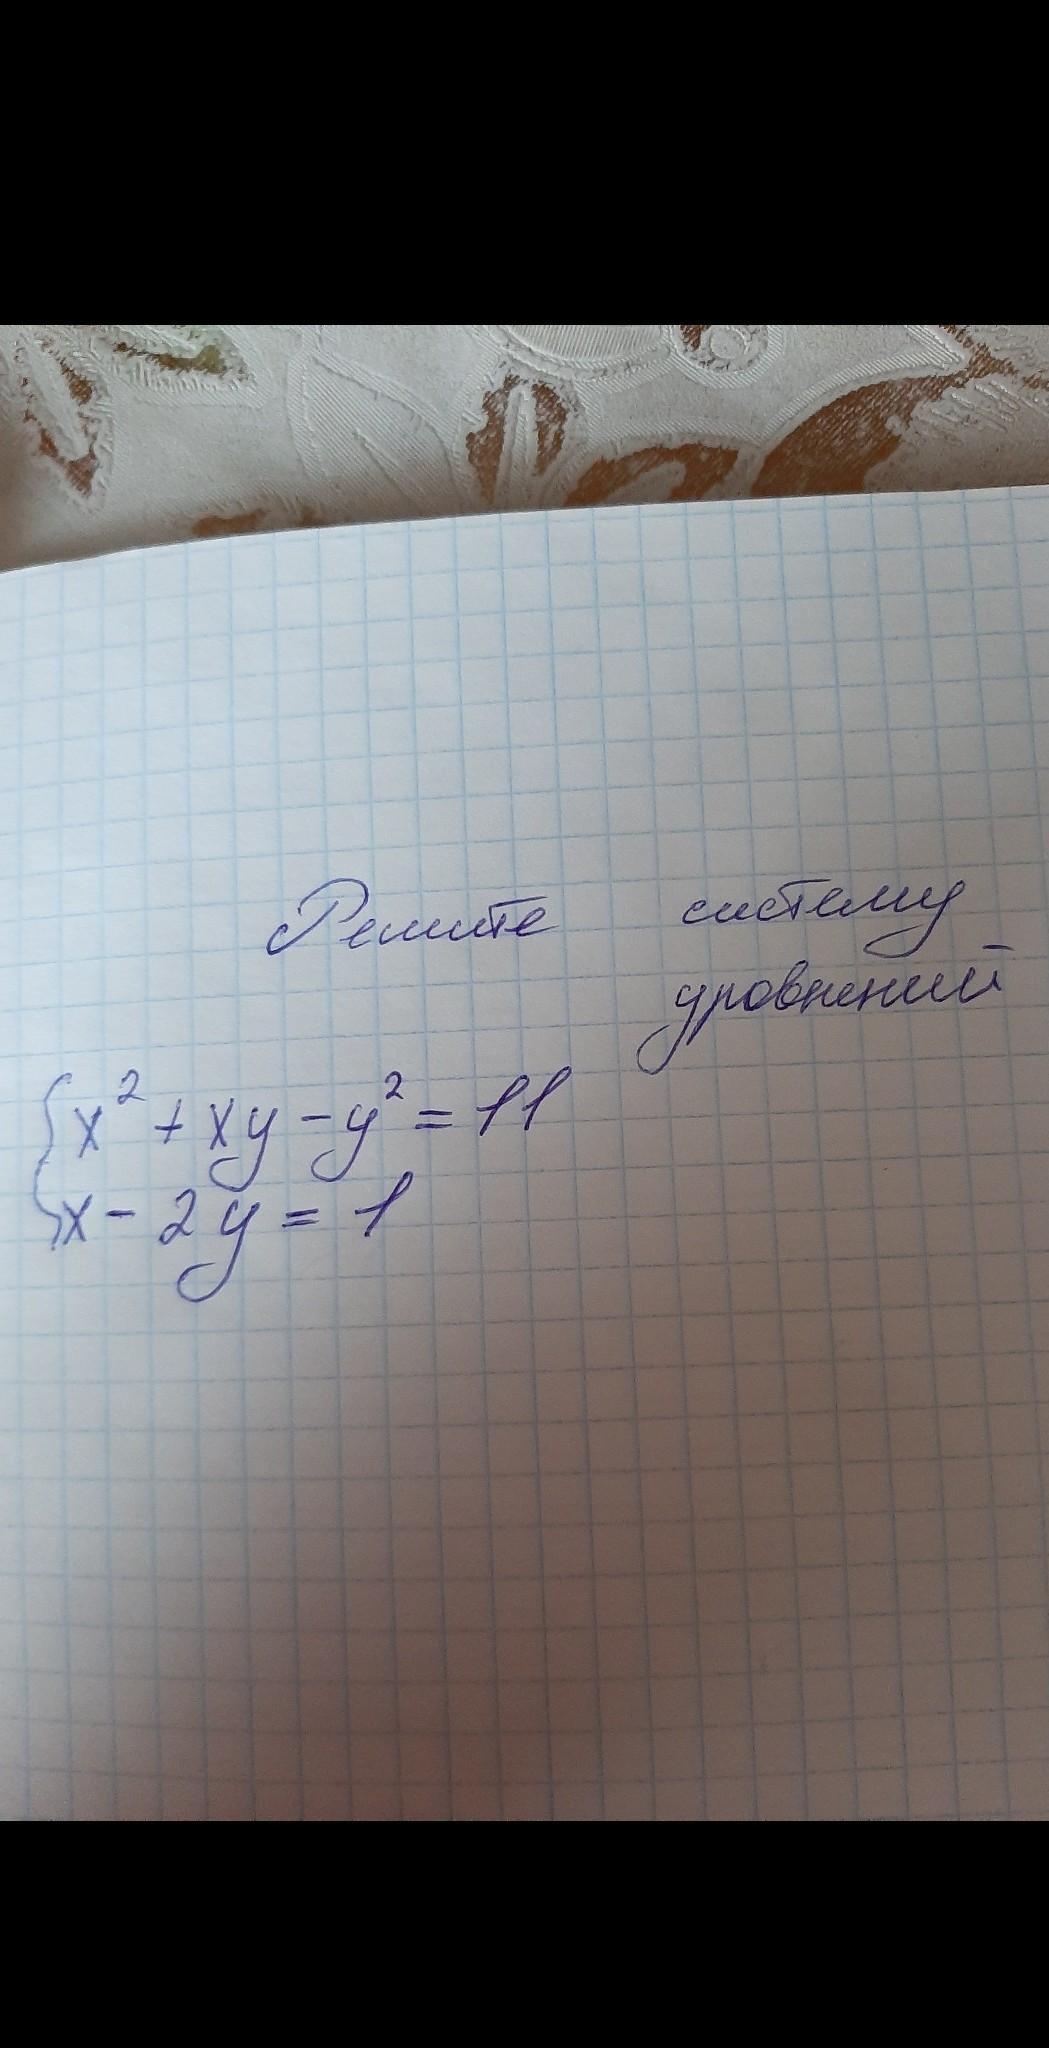 Решите систему
уровнений
x² + xy - y² = 11
x - 2y = 1